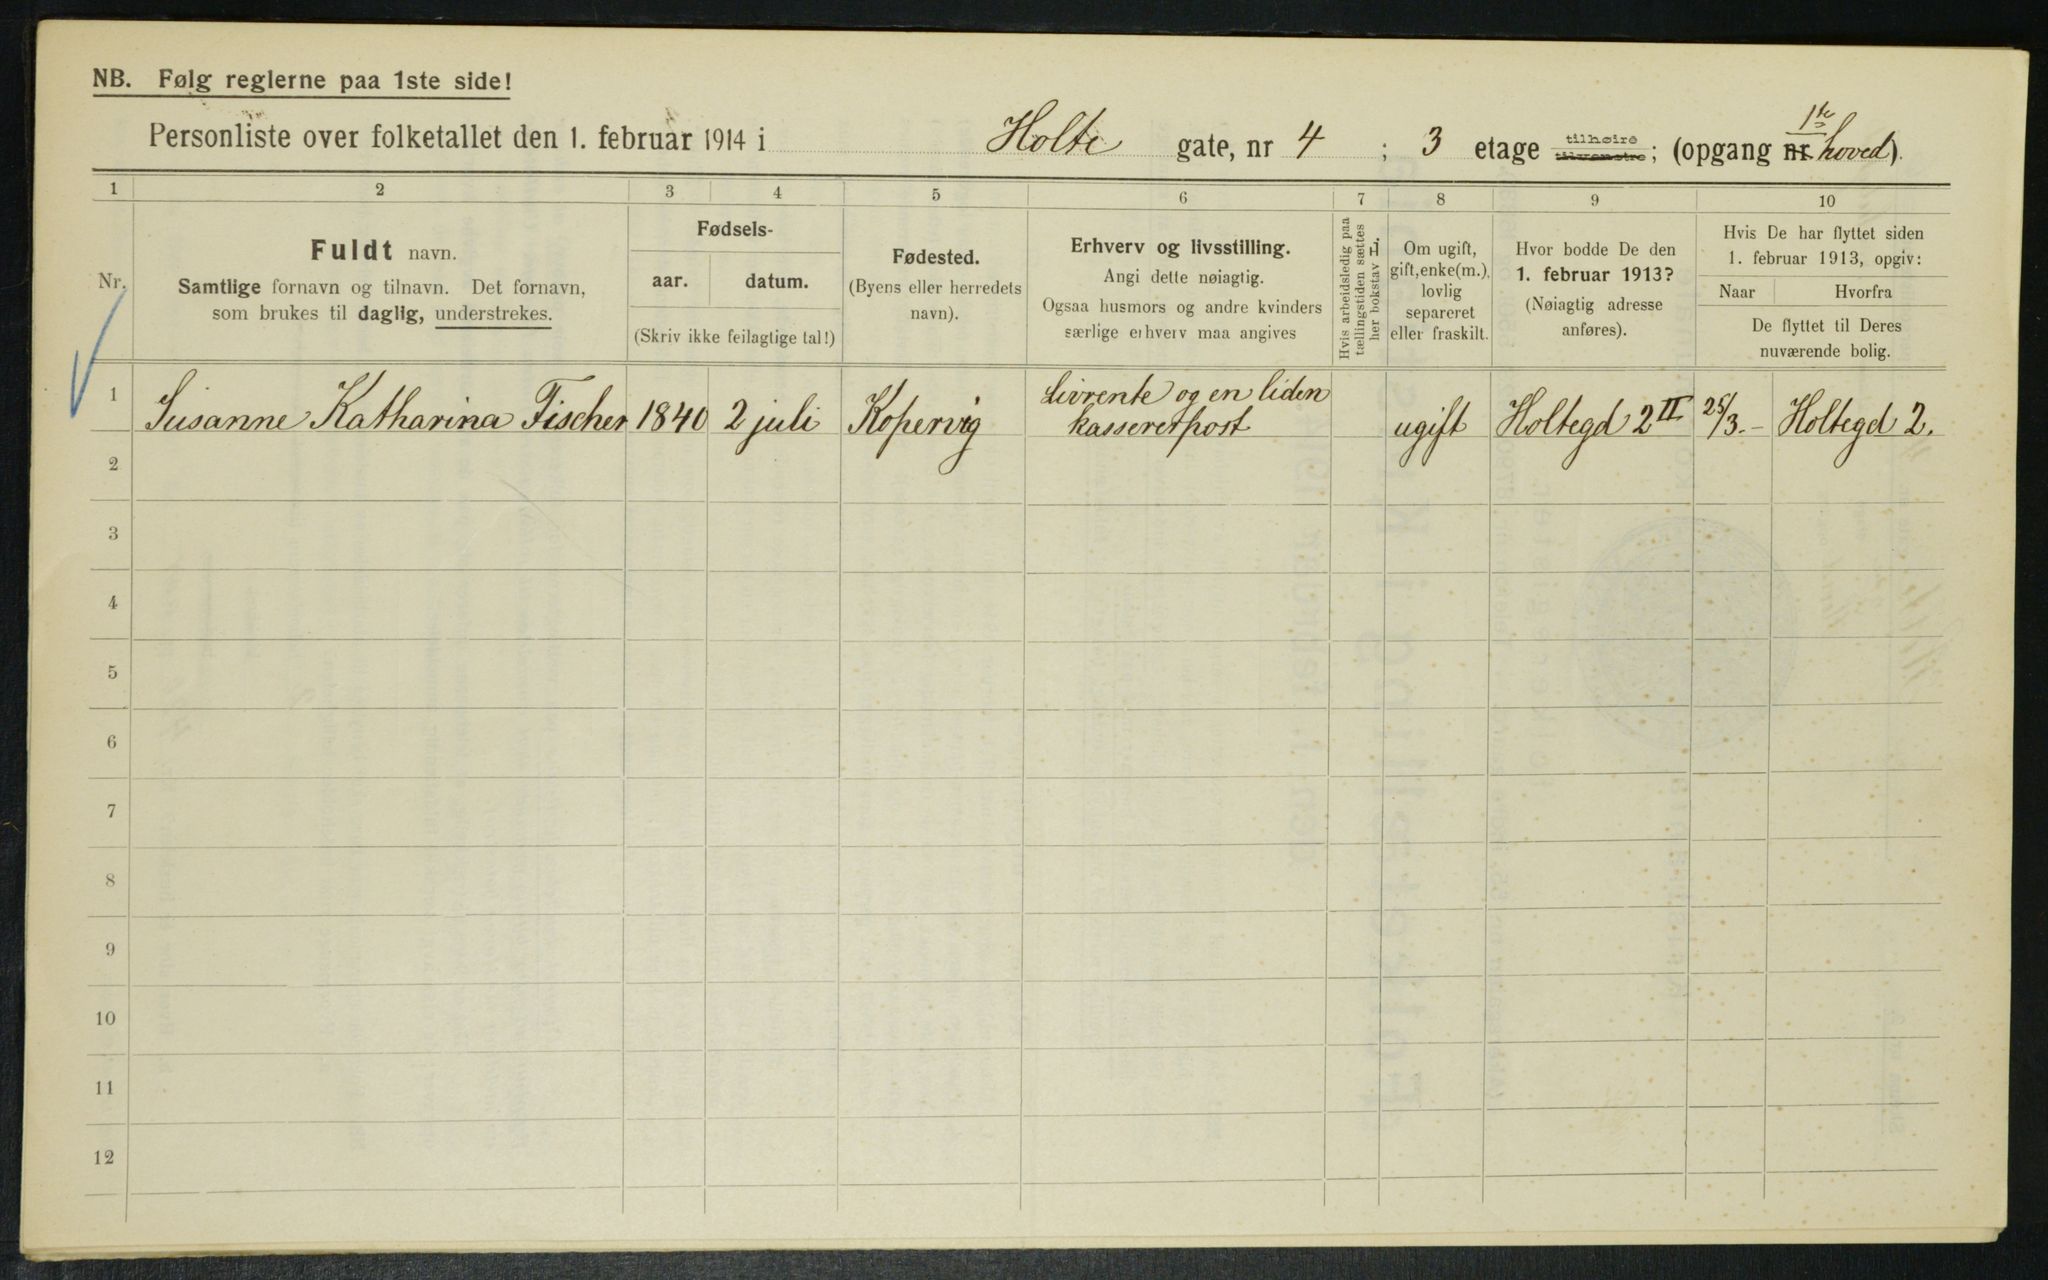 NB. Følg reglerne paa 1ste side!
Personliste over folketallet den 1. februar 1914 i Holte gate, nr 4 ; 3 etage tilhøire tilvenstre; (opgang nr. 1ste hoved).
1 2 3 4 5 6 7 8 9 10
Nr.
Fuldt navn.
Samtlige fornavn og tilnavn. Det fornavn,
som brukes til daglig, understrekes.
Fødsels-
aar. datum.
(Skriv ikke feilagtige tal!)
Fødested.
(Byens eller herredets
navn).
Erhverv og livsstilling.
Angi dette nøiagtig.
Ogsaa husmors og andre kvinders
særlige erhverv maa angives
Hvis arbeidsledig paa
tællingstiden sættes
her bokstav l.
Om ugift,
gift, enke(m.),
lovlig
separeret
eller fraskilt.
Hvor bodde De den
1. februar 1913?
(Nøiagtig adresse
anføres).
Hvis De har flyttet siden
1. februar 1913, opgiv:
Naar Hvorfra
De flyttet til Deres
nuværende bolig.
1 Susanne Katharina Fischer 1840 2 juli Kopervig Livrente og en liden
kasseretpost ugift Holtegd 2 II 25/3.- Holtegd 2.
2
3
4
5
6
7
8
9
10
11
12